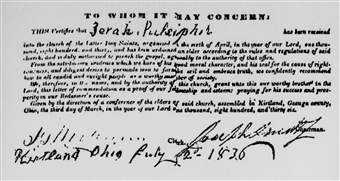 TO WHOM IT MAY CONCERN:
THIS Certifies that Zerah Pulsipher has been received
into the church of the Latter Day Saints, organized on the sixth of April, in the year of our Lord, one thousand,
eight hundred, and thirty, and has been ordained an elder according to the rules and regulations of said
church, and is duly authorized to preach the gospel, agreeably to the authority of that office.
From the satisfactory evidence which we have of his good moral character, and his zeal for the cause of right-
eousness, and diligent desire to persuade men to forsake evil and embrace truth, we confidently recommend
him to all candid and upright people as a worthy member of society.
We, therefore, in the name, and by the authority of this church, grant unto this our worthy brother in the
Lord, this letter of commendation as a proof of our fellowship and esteem: praying for his success and pros-
perity in our Redeemer's cause.
Given by the direction of a conference of the elders of said church, assembled in Kirtland, Geauga county,
Ohio, the third day of March, in the year of our Lord one thousand, eight hundred, thirty and six.
Clerk. Joseph Smith Jr Chairman.
Kirtland Ohio July 2d 1836